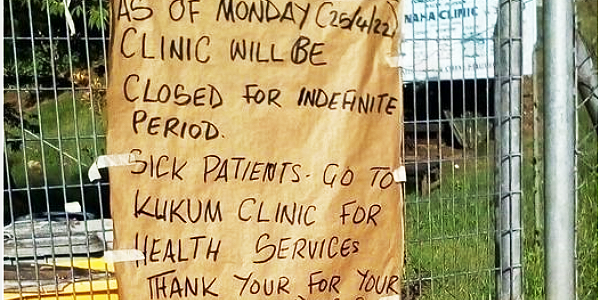 AS OF MONDAY (25/4/22)
CLINIC WILL BE
CLOSED FOR INDEFINITE
PERIOD.
SICK PATIENTS. GO TO
KUKUM CLINIC FOR
HEALTH SERVICES
THANK YOUR FOR YOUR
NAHA CLINIC